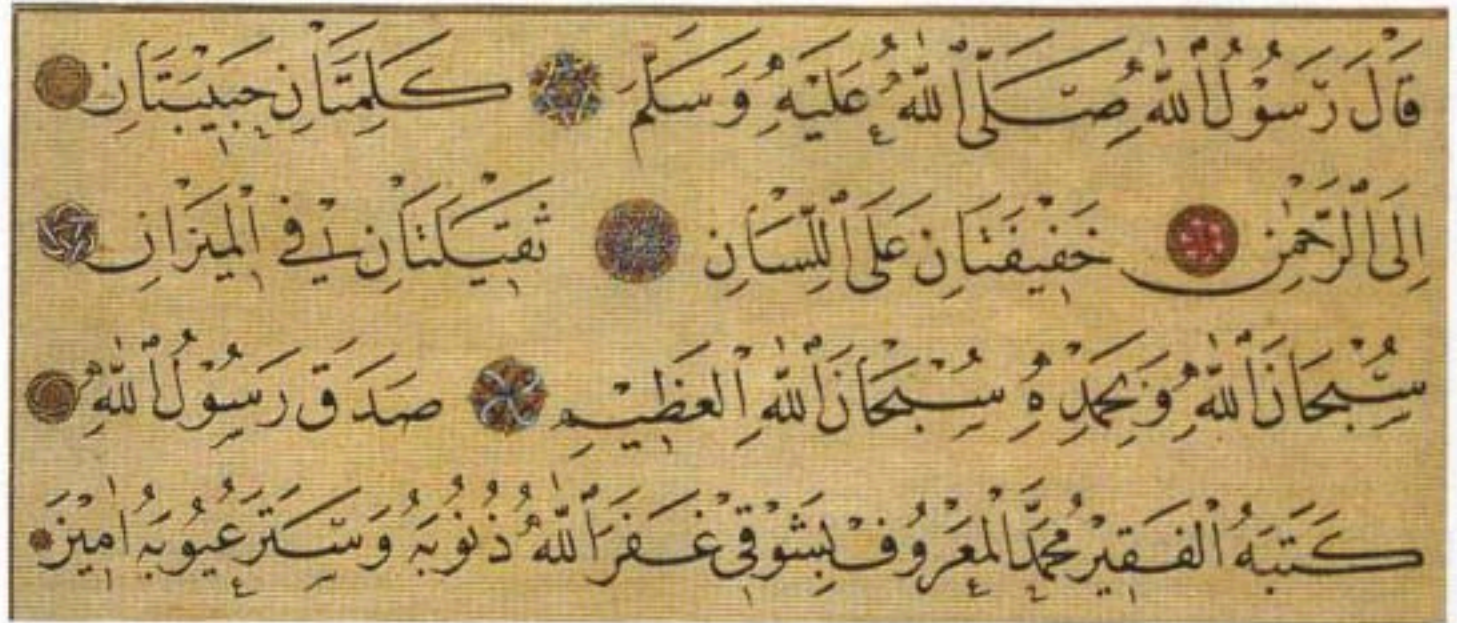 قَالَ رَسُوْلُ اللّٰهِ صَلَّى اللّٰهُ عَلَيْهِ وَسَلَّمَ كَلِمَتَانِ حَبِيْبَتَانِ
اِلَى الرَّحْمٰنِ خَفِيْفَتَانِ عَلَى اللِّسَانِ ثَقِيْلَتَانِ فِي الْمِيْزَانِ
سُبْحَانَ اللّٰهِ وَبِحَمْدِهِ سُبْحَانَ اللّٰهِ الْعَظِيْمِ صَدَقَ رَسُوْلُ اللّٰهِ
كَتَبَهُ الْفَقِيْرُ مُحَمَّدُ الْمَعْرُوْفُ بِشَوْقِيْ غَفَرَ اللّٰهُ ذُنُوْبَهُ وَسَتَرَ عُيُوْبَهُ اٰمِيْنَ